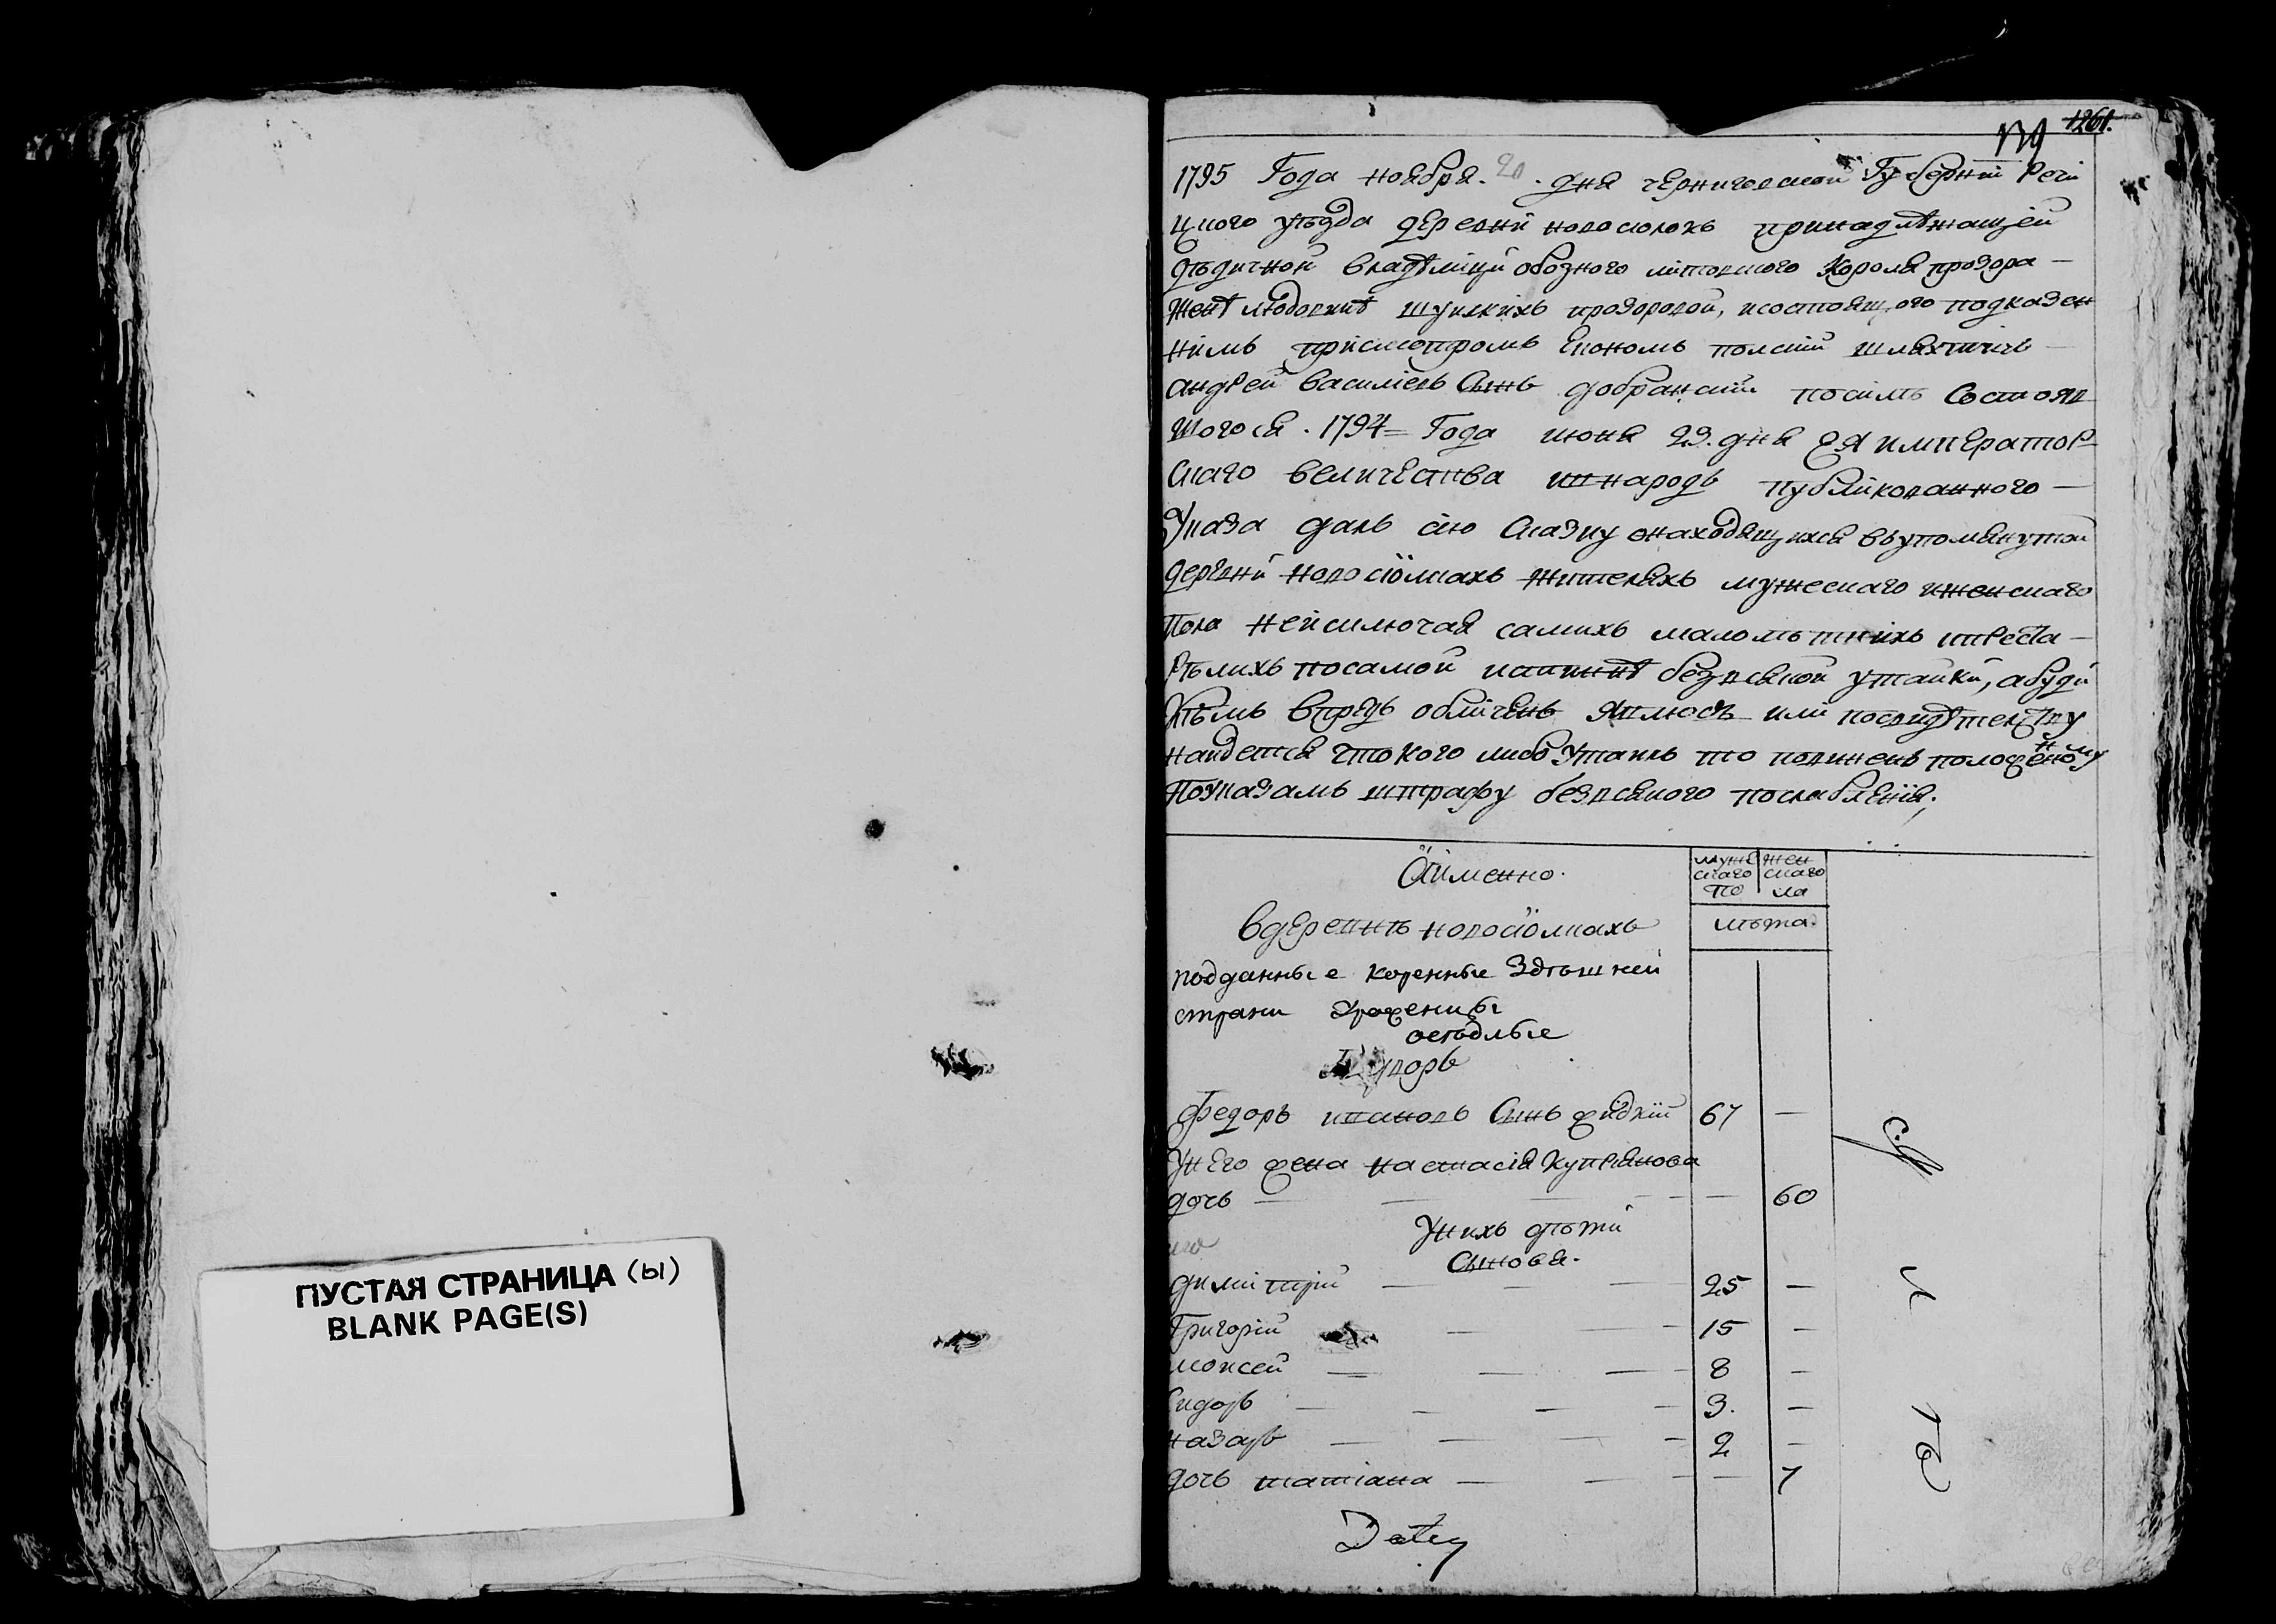 ПУСТАЯ СТРАНИЦА (ы)
BLANK PAGE(S)
1261.
1795 Года ноября. 20. дня черниговской Губернїи Речи
цкого уѣзда деревнй новосюлокъ принадлѣжащей
дѣдичной владѣлици обозного литовского Короля прозора
женѣ людовикѣ шуйскихъ прозоровой, исостоящого подказен
нимъ присмотромъ Економъ полский шляхтичъ
андрей василіевъ Сынъ добранский посилѣ Состояв
шогося. 1794 = Года июня 23. дня Ея император
скаго величества инародъ публикованного
Указа далъ сїю Сказку онаходящихся въупомянутой
деревнй новосїолкахъ жителяхъ мужескаго иженскаго
пола неисключая самихъ малолѣтнихъ ипреста
рѣлихъ посамой истиннѣ безвсякой утайки, абуди
кѣмъ впредь обличенъ явлюсъ или посвидѣтелству
найдется что кого либо утаилъ то повиненъ положенному
поуказамъ штрафу безвсякого послабленїя;
Аименно.
муже
скаго
по
жен
скаго
ла
вдеревнѣ новосїолкахъ
лѣта.
подданные коренные Здѣшней
страни Урожениы
осѣдлые
Федоръ ивановъ Сынъ жидкїй 67 —
Унего жена настасїя Купрїянова
дочъ — — 60
Унихъ дѣти
Сынова.
димитрїй — 25 —
Григорїй — 15 —
моисей — 8 —
Сидоръ — 3. —
назаръ — 2 —
дочъ татїана — — 7